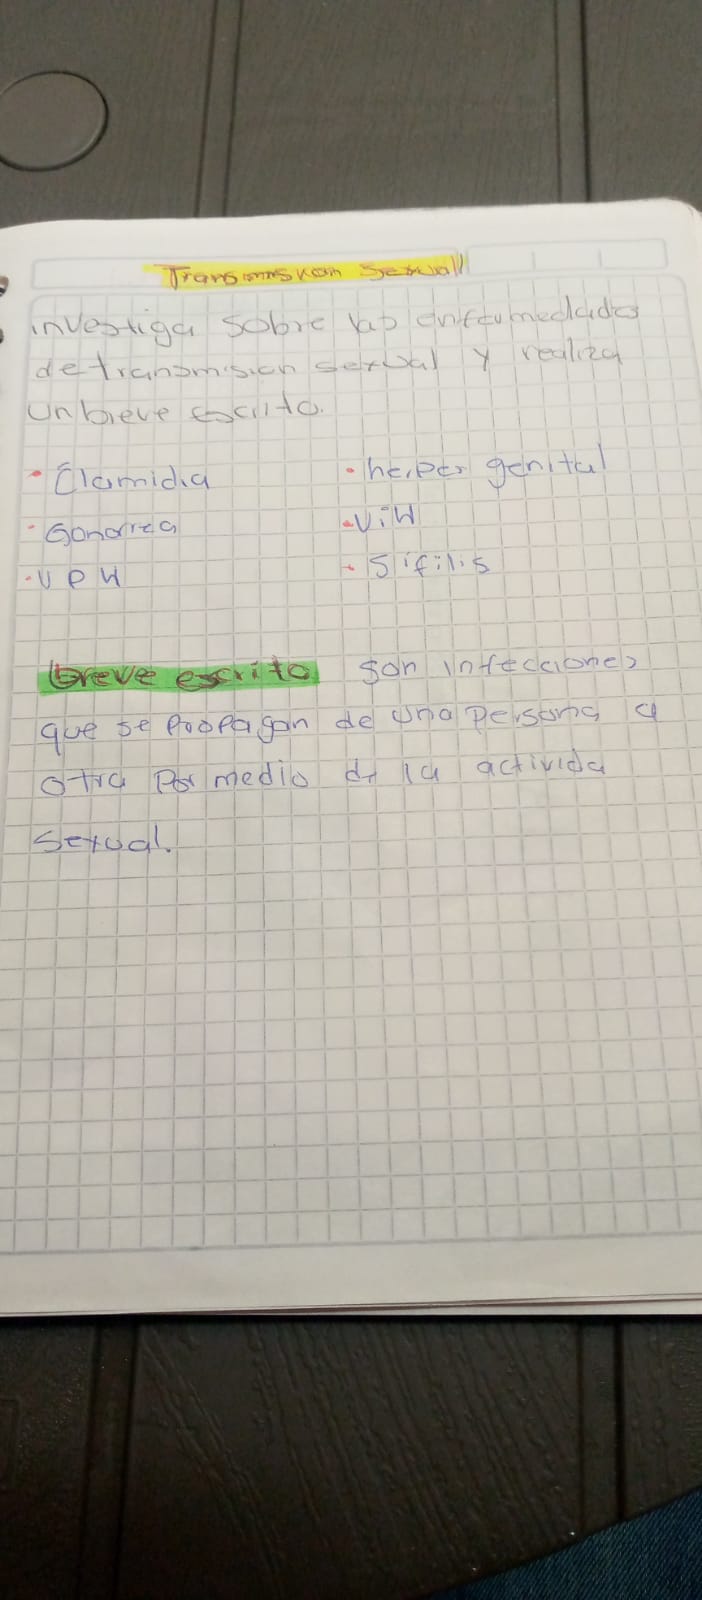 Transmiskon Sexual
investiga sobre las enfermedades
de transmision sexual y realiza
un breve escrito.
• Clamidia
• herper genital
• Gonorrea
• ViH
• VPH
• Sifilis
breve escrito son infecciones
que se propagan de una persona a
otra por medio de la activida
sexual.